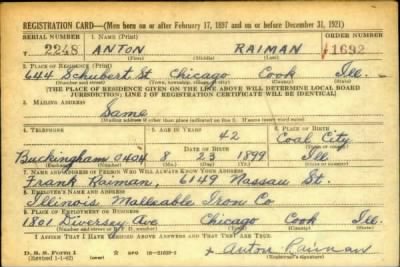 REGISTRATION CARD—(Men born on or after February 17, 1897 and on or before December 31, 1921)
SERIAL NUMBER 1. NAME (Print) ORDER NUMBER
T 2248 ANTON RAIMAN 11692
(First) (Middle) (Last)
2. PLACE OF RESIDENCE (Print)
644 Schubert St Chicago Cook Ill.
(Number and street) (Town, township, village, or city) (County) (State)
[THE PLACE OF RESIDENCE GIVEN ON THE LINE ABOVE WILL DETERMINE LOCAL BOARD
JURISDICTION; LINE 2 OF REGISTRATION CERTIFICATE WILL BE IDENTICAL]
3. MAILING ADDRESS
Same
(Mailing address if other than place indicated on line 2. If same insert word same)
4. TELEPHONE 5. AGE IN YEARS 6. PLACE OF BIRTH
42 Coal City
DATE OF BIRTH (Town or county)
Buckingham 0404 8 23 1899 Ill
(Exchange) (Number) (Mo.) (Day) (Yr.) (State or country)
7. NAME AND ADDRESS OF PERSON WHO WILL ALWAYS KNOW YOUR ADDRESS
Frank Raiman, 6149 Nassau St.
8. EMPLOYER'S NAME AND ADDRESS
Illinois Malleable Iron Co
9. PLACE OF EMPLOYMENT OR BUSINESS
1801 Diversey Ave Chicago Cook Ill.
(Number and street or R. F. D. number) (Town) (County) (State)
I AFFIRM THAT I HAVE VERIFIED ABOVE ANSWERS AND THAT THEY ARE TRUE.
D. S. S. Form 1
(Revised 1-1-42) GPO 16-21630-2 Anton Raiman
(over) (Registrant's signature)